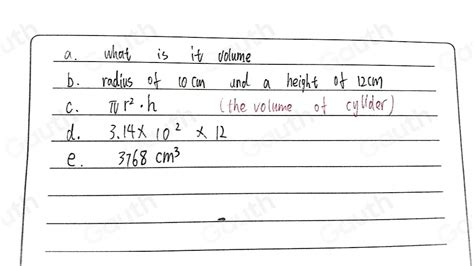 a. what is it volume
b. radius of 10 cm und a height of 12cm
c. πr²·h (the volume of cylider)
d. 3.14× 10² × 12
e. 3768 cm³
Gauth